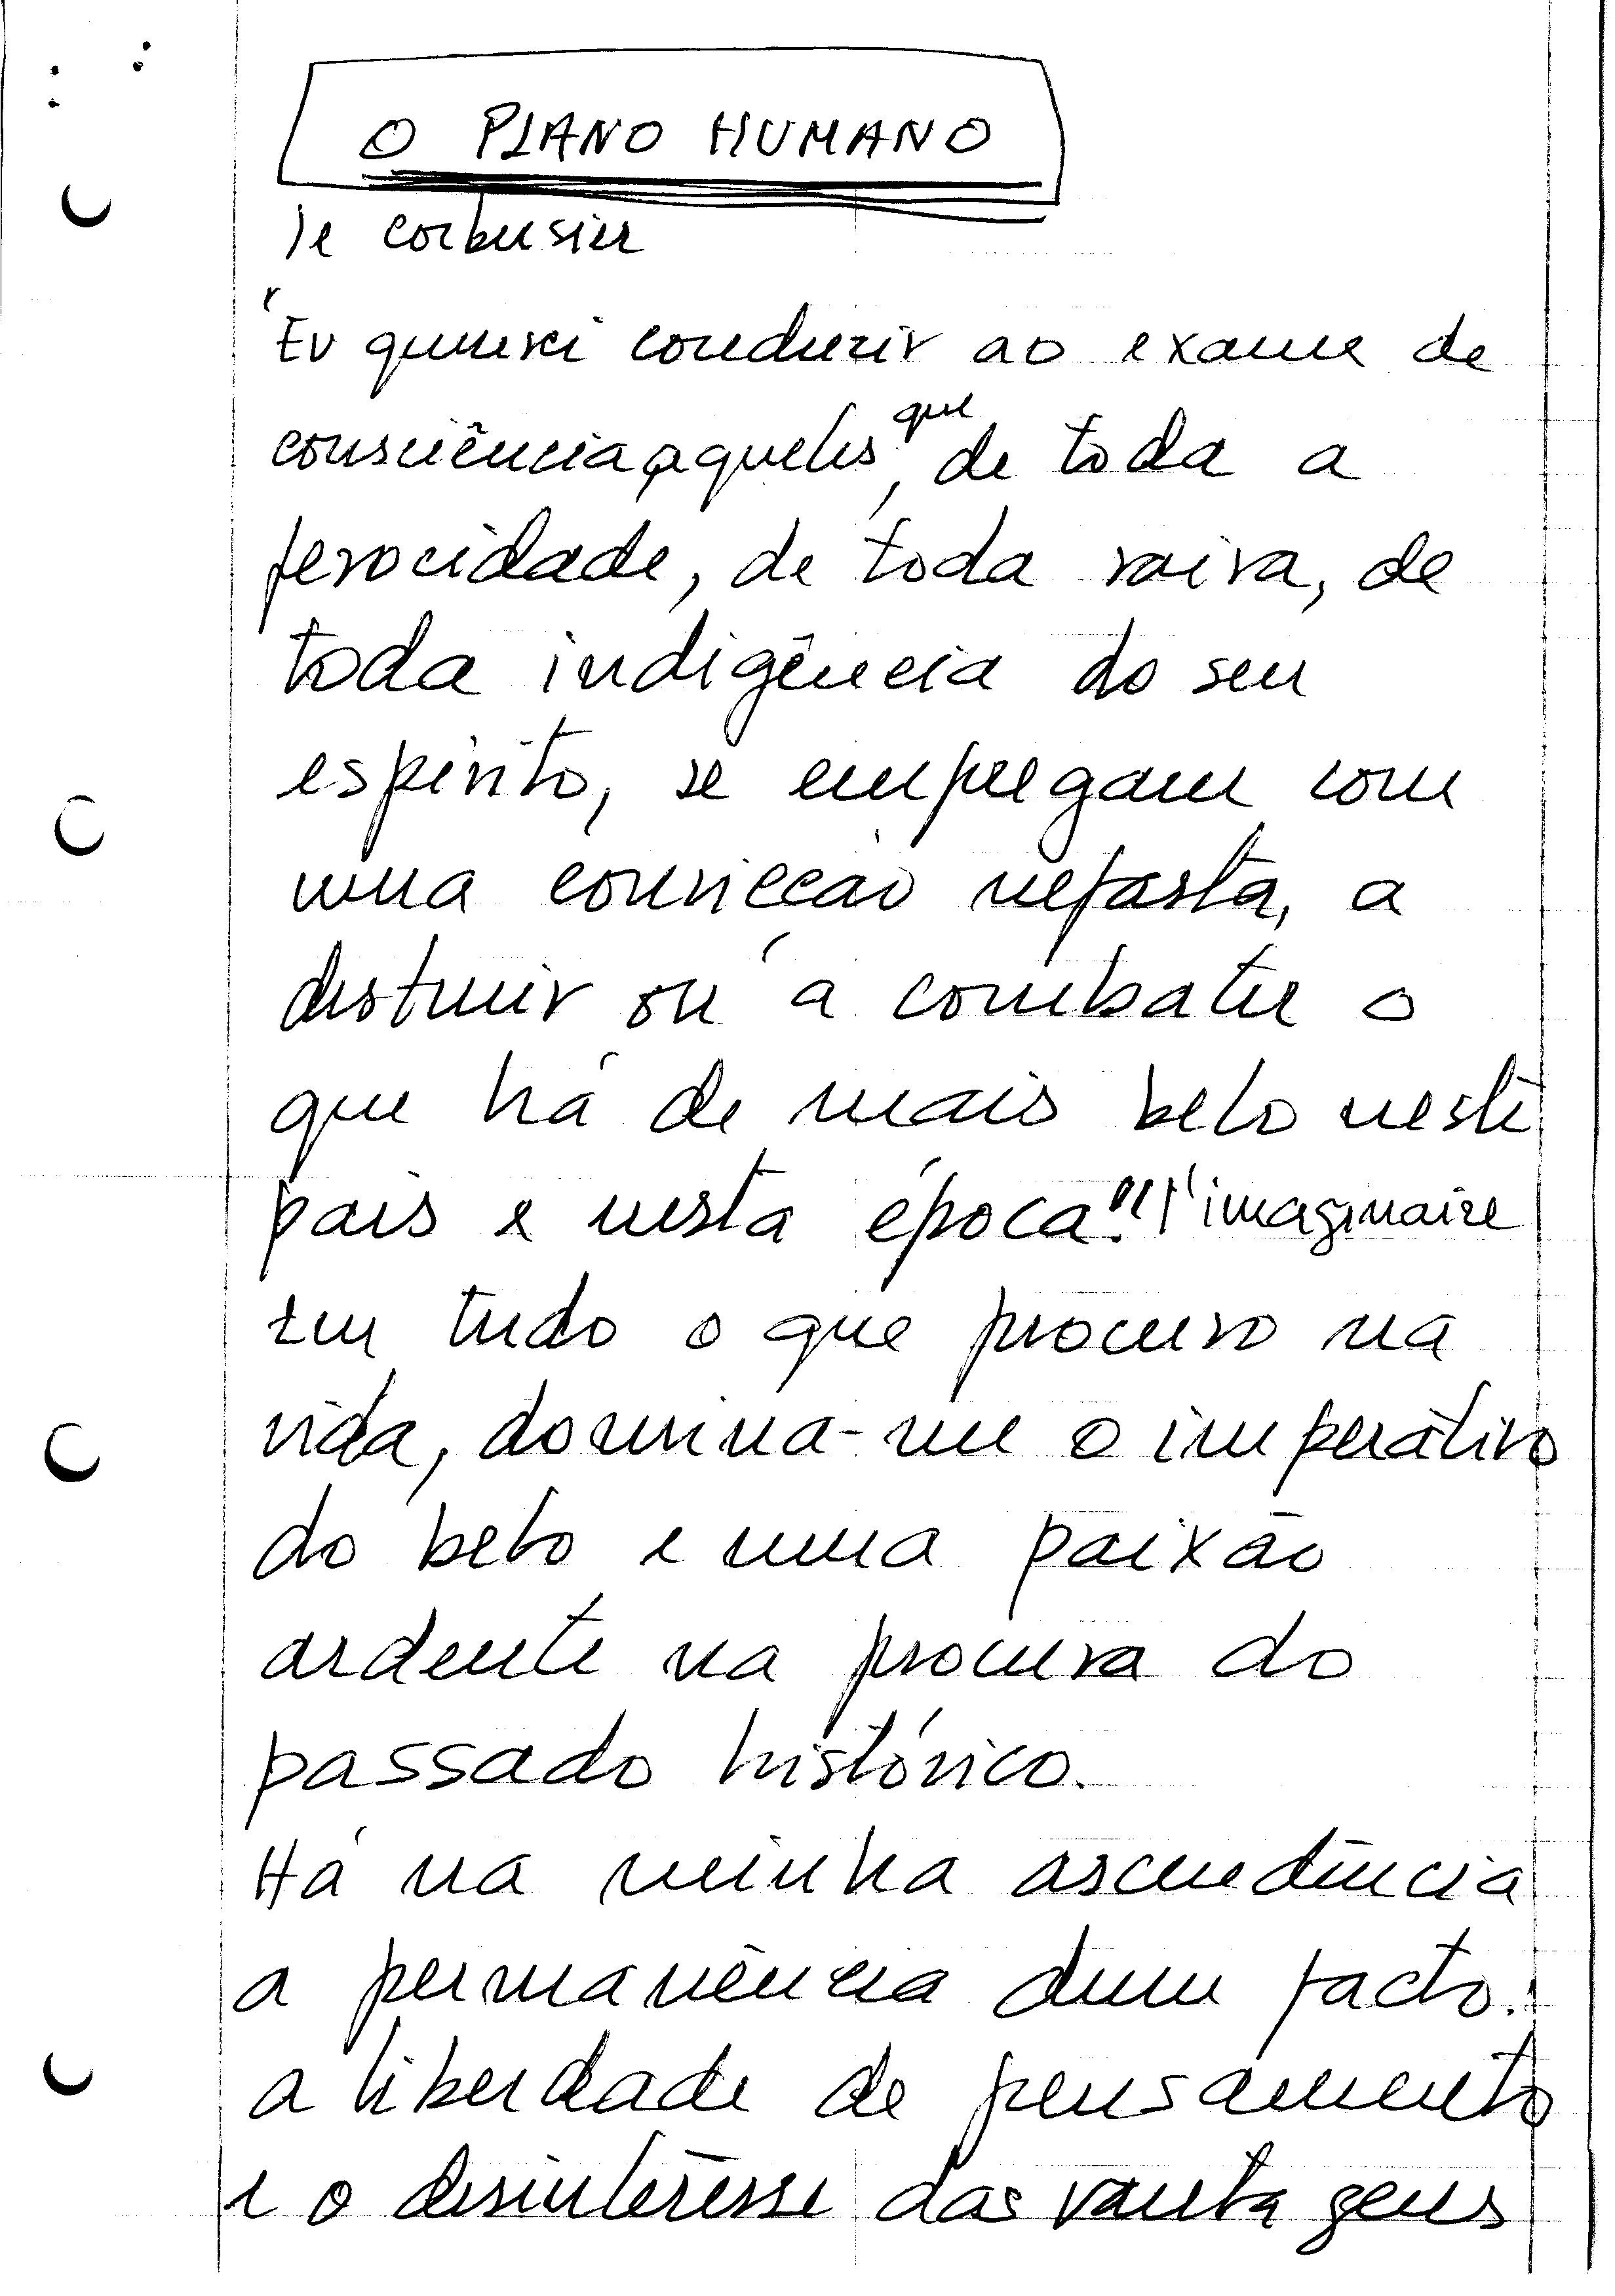 O PLANO HUMANO
le corbusier
"Eu quererei conduzir ao exame de
consciência aqueles que, de toda a
ferocidade, de toda raiva, de
toda indigência do seu
espírito, se empregam com
uma convicção nefasta, a
destruir ou a combater o
que há de mais belo neste
pais e nesta época." l'imaginaire
Em tudo o que procuro na
vida, domina-me o imperativo
do belo e uma paixão
ardente na procura do
passado histórico.
Há na minha ascendência
a permanência dum facto:
a liberdade de pensamento
e o desinterêsse das vantagens